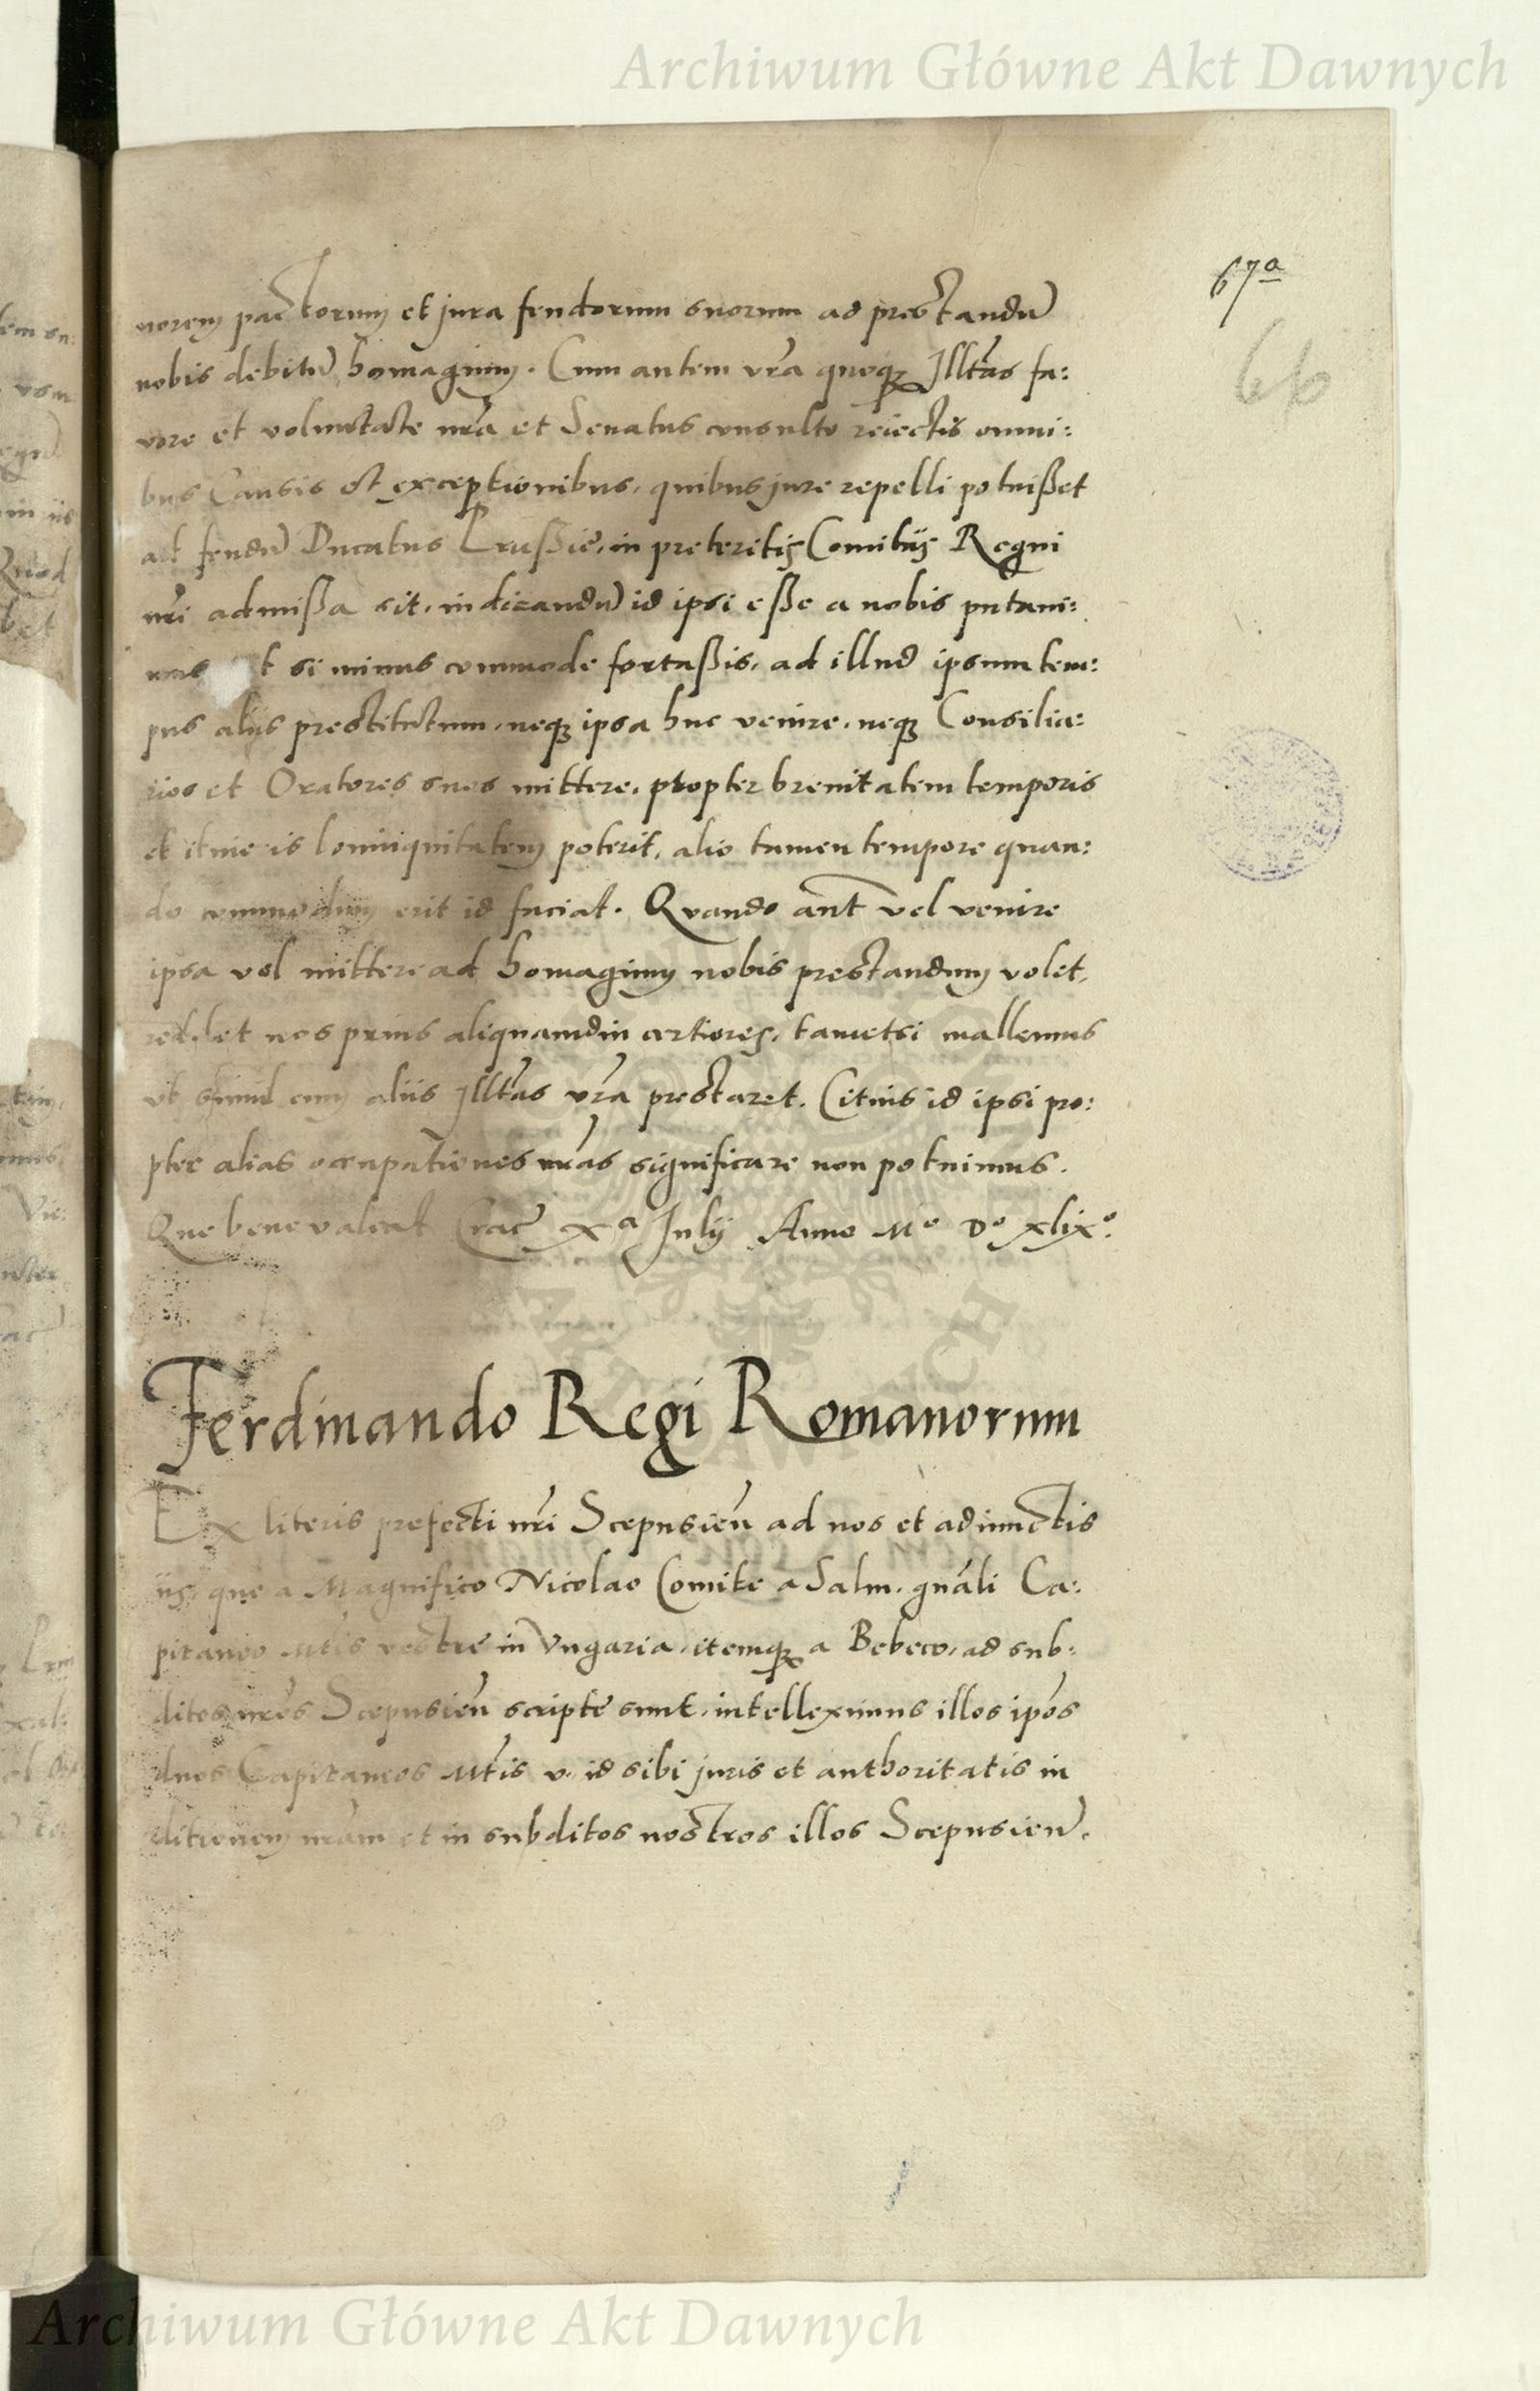 Archiwum Główne Akt Dawnych
67a
66
norem pactorum et jura feudorum suorum ad prestandū
nobis debitū homagium. Cum autem vrā quoqȝ Illtas fa:
vore et voluntate nrā et Senatus consulto reiectis omni:
bus causis et exceptionibus, quibus jure repelli potuißet
ad feudū Ducatus Prußie, in preteritis Comitijs Regni
nri admißa sit, indicandū id ipsi eße a nobis putavi:
mus t si minus commode fortaßis, ad illud ipsum tem:
pus alijs prestitutum, neqȝ ipsa huc venire, neqȝ Consilia:
rios et Oratores suos mittere, propter brevitatem temporis
et itineris longinquitatem poterit, alio tamen tempore quan:
do commodum erit id faciat. Quando aut vel venire
ipsa vel mittere ad homagium nobis prestandum volet,
reddet nos prius aliquamdiu certiores, tametsi mallemus
ut simul cum aliis Illtas vrā prestaret. Citius id ipsi pro:
pter alias occupationes nras significare non potuimus.
Que bene valeat Crac xa Julij Anno Mo Do xlixo.
Ferdinando Regi Romanorum
Ex literis prefecti nri Scepusien ad nos et adiunctis
iis, que a Magnifico Nicolao Comite a Salm, gnali Ca:
pitaneo Mtis vestre in Vngaria, itemqȝ a Bebeco, ad sub:
ditos nros Scepusien scripte sunt, intelleximus illos ipos
duos Capitaneos Mtis v. id sibi juris et authoritatis in
ditionem nram et in subditos nostros illos Scepusien.
Archiwum Główne Akt Dawnych